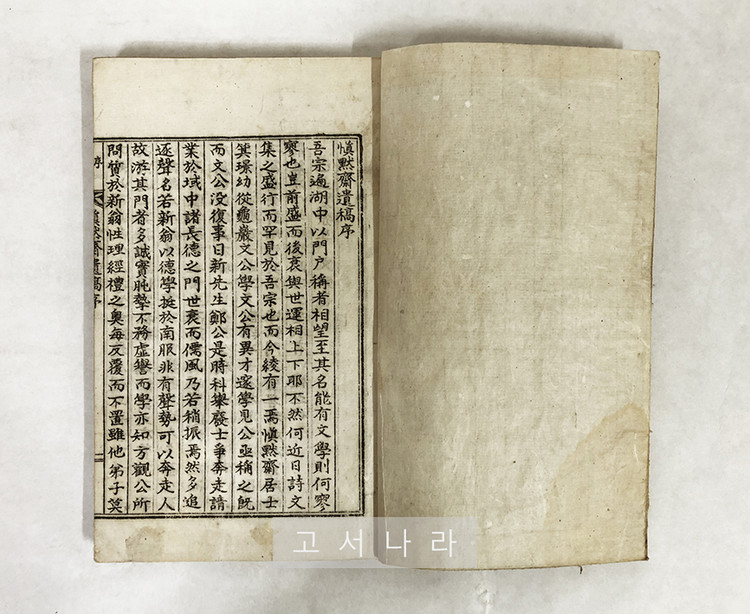 愼默齋遺稿序
吾宗遍湖中以門户稱者相望至其名能有文學則何寥
寥也豈前盛而後衰與世運相上下耶不然何近日詩文
集之盛行而罕見於吾宗也而今綾有一焉愼默齋居士
箕璟幼從龜巖文公學文公有異才邃學見公亟稱之旣
而文公没復事日新先生鄭公是時科擧廢士爭奔走請
業於域中諸長德之門世衰而儒風乃若稍振焉然多追
逐聲名若新翁以德學挺於南服非有聲勢可以奔走人
故游其門者多誠實肫摯不務虛譽而學亦知方觀公所
問質於新翁性理經禮之奧每反覆而不置雖他弟子莫
序
愼默齋遺稿序
一
고서나라